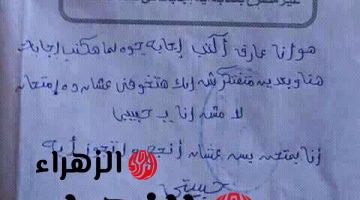 هو انا عارف أكتب إجابة جوه لما هكتب إجابة
هنا وبعدين متفتكرش إنك هتخوفني عشان ده إمتحان
لا مش أنا يا حبيبي
أنا بمتحن بس عشان أنجح و اتجوز أية
حبيبتي
الزهراء